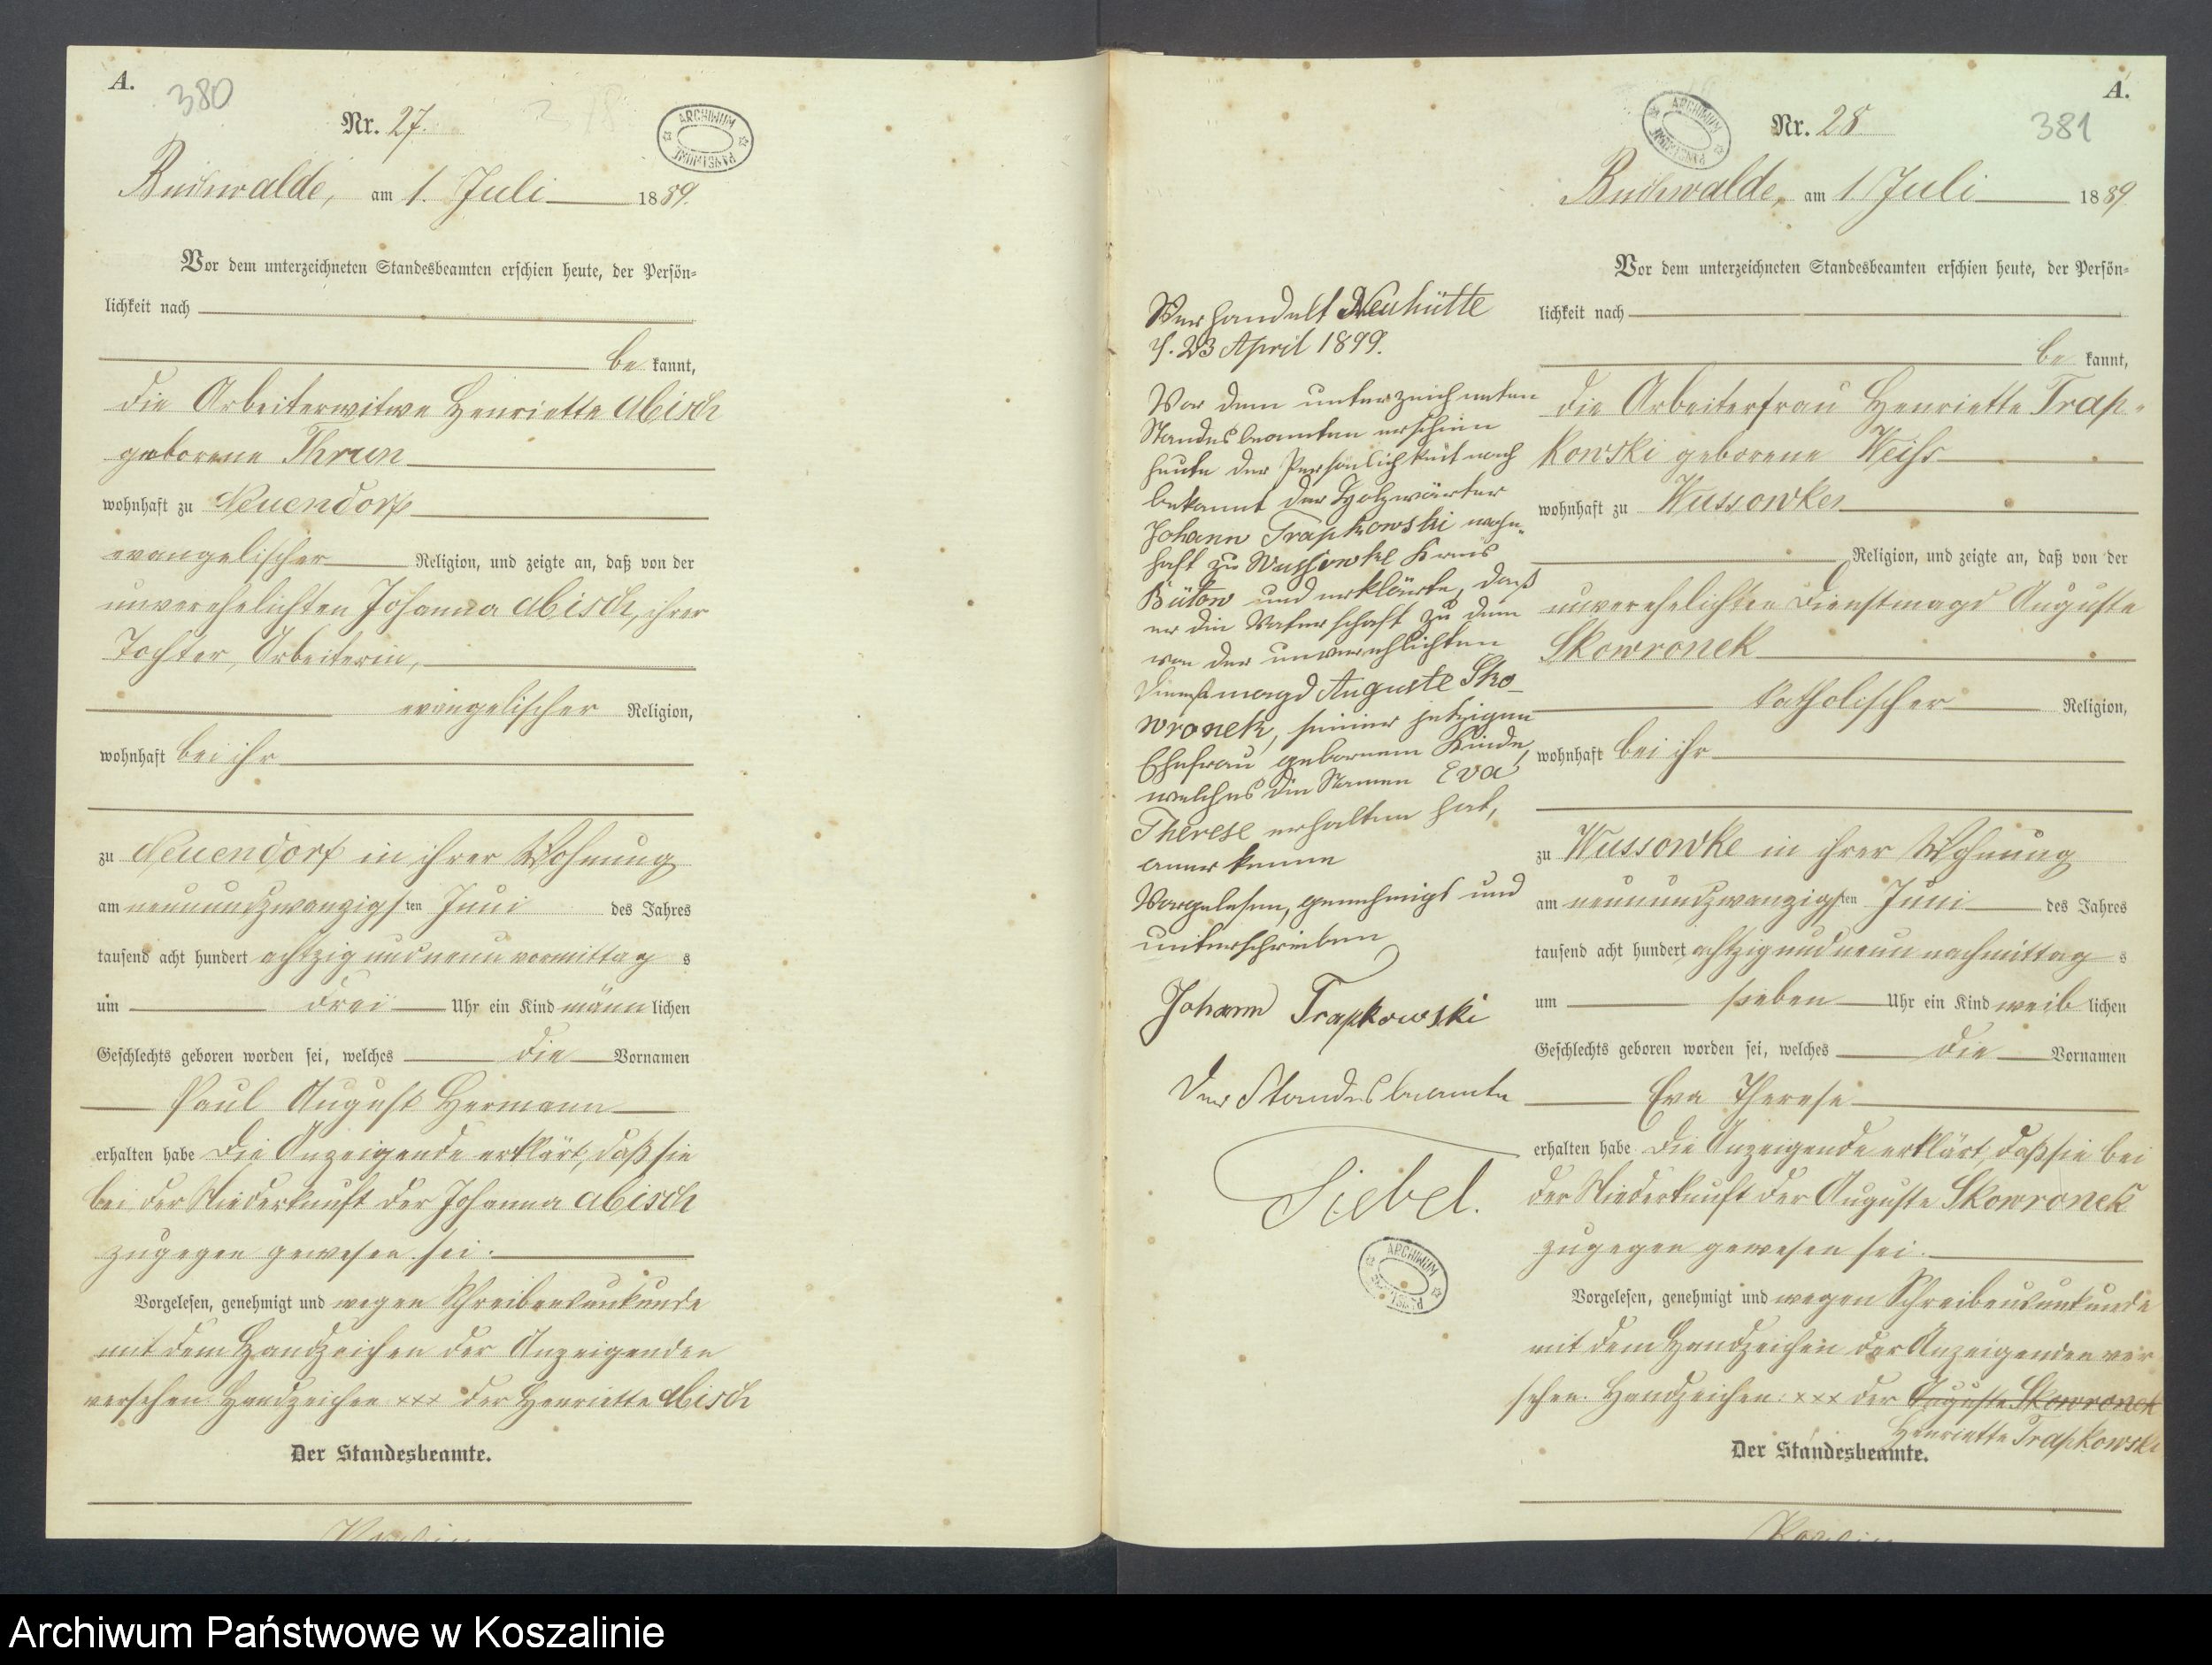 A.
380
Nr. 27.
ARCHIWUM PAŃSTWOWE
Buchwalde, am 1. Juli 1889.
Vor dem unterzeichneten Standesbeamten erschien heute, der Persön=
lichkeit nach
be kannt,
die Arbeiterwitwe Henriette Abisch
geborene Thrun
wohnhaft zu Neuendorf
evangelischer Religion, und zeigte an, daß von der
unverehelichten Johanna Abisch, ihrer
Tochter, Arbeiterin,
evangelischer Religion,
wohnhaft bei ihr
zu Neuendorf in ihrer Wohnung
am neunundzwanzigsten Juni des Jahres
tausend acht hundert achtzig und neun vormittags
um drei Uhr ein Kind männlichen
Geschlechts geboren worden sei, welches die Vornamen
Paul August Hermann
erhalten habe Die Anzeigende erklärt, daß sie
bei der Niederkunft der Johanna Abisch
zugegen gewesen sei.
Vorgelesen, genehmigt und wegen Schreibensunkunde
mit dem Handzeichen der Anzeigenden
versehen Handzeichen xxx der Henriette Abisch
Der Standesbeamte.
Verhandelt Neuhütte
d. 23 April 1899.
Vor dem unterzeichneten
Standesbeamten erschien
heute der Persönlichkeit nach
bekannt der Holzwärter
Johann Trapkowski wohn-
haft zu Wussowke Kreis
Bütow und erklärte, daß
er die Vaterschaft zu dem
von der unverehlichten
Dienstmagd Auguste Sko-
wronek, seiner jetzigen
Ehefrau geborenem Kinde,
welches die Namen Eva
Therese erhalten hat,
anerkenne
Vorgelesen, genehmigt und
unterschrieben
Johann Trapkowski
Der Standesbeamte
Siebel.
ARCHIWUM
A.
381
Nr. 28
ARCHIWUM PAŃSTWOWE
Buchwalde, am 1. Juli 1889
Vor dem unterzeichneten Standesbeamten erschien heute, der Persön=
lichkeit nach
be kannt,
die Arbeiterfrau Henriette Trap-
kowski geborene Weiß
wohnhaft zu Wussowke
Religion, und zeigte an, daß von der
unverehelichten Dienstmagd Auguste
Skowronek
katholischer Religion,
wohnhaft bei ihr
zu Wussowke in ihrer Wohnung
am neunundzwanzigsten Juni des Jahres
tausend acht hundert achtzig und neun nachmittags
um sieben Uhr ein Kind weiblichen
Geschlechts geboren worden sei, welches die Vornamen
Eva Therese
erhalten habe Die Anzeigende erklärt, daß sie bei
der Niederkunft der Auguste Skowronek
zugegen gewesen sei.
Vorgelesen, genehmigt und wegen Schreibensunkunde
mit dem Handzeichen der Anzeigenden ver
sehen. Handzeichen: xxx der Auguste Skowronek
Henriette Trapkowski
Der Standesbeamte.
Archiwum Państwowe w Koszalinie